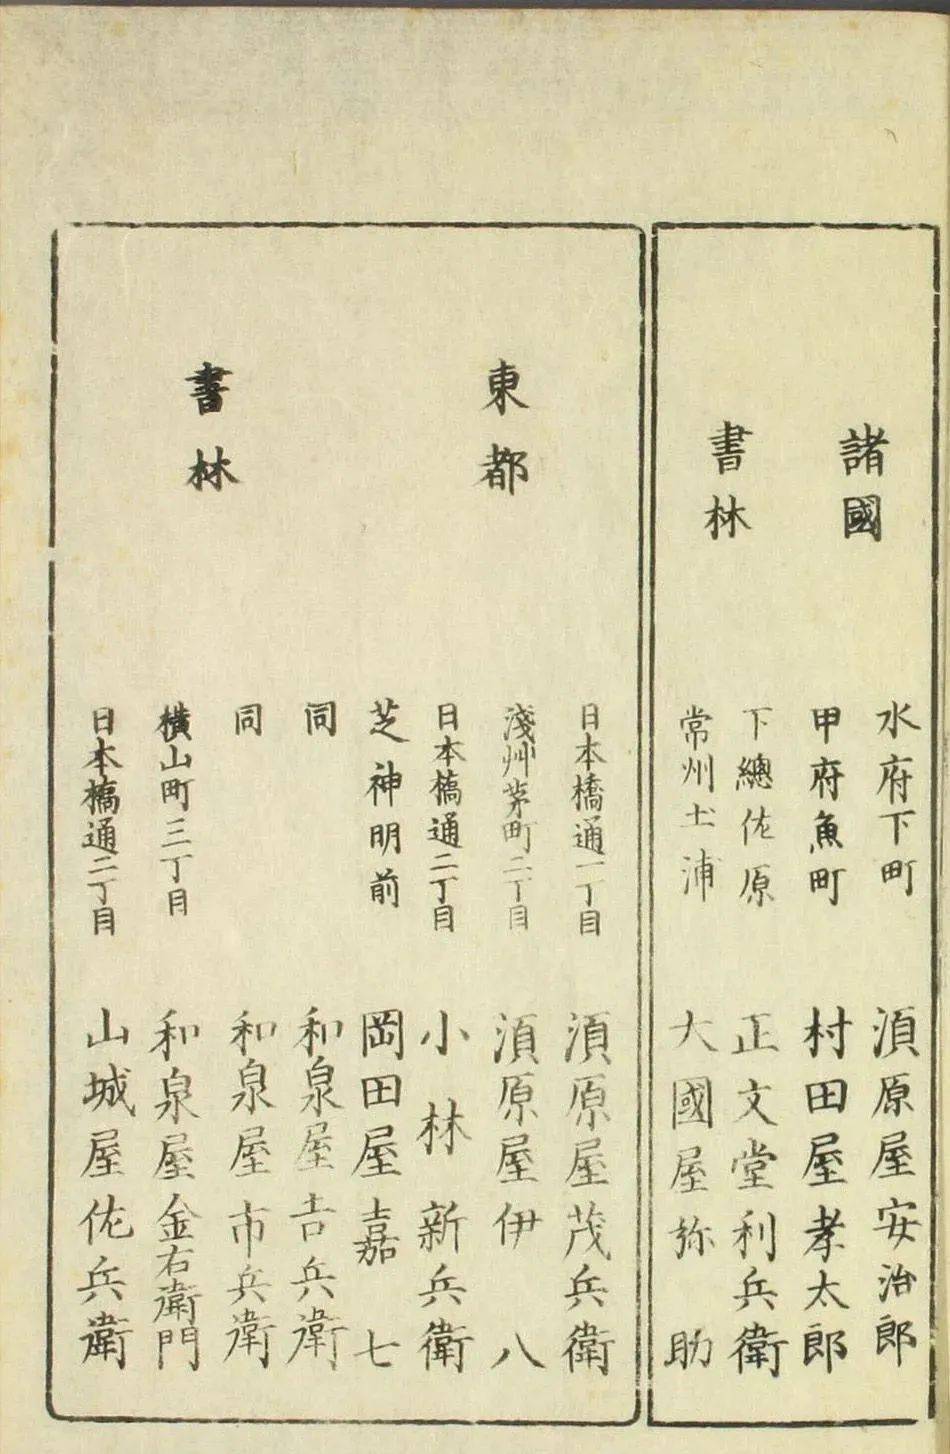 諸國
書林
水府下町 須原屋安治郎
甲府魚町 村田屋孝太郎
下總佐原 正文堂利兵衛
常州土浦 大國屋弥助
東都
書林
日本橋通一丁目 須原屋茂兵衛
淺艸茅町二丁目 須原屋伊八
日本橋通二丁目 小林新兵衛
芝神明前 岡田屋嘉七
同 和泉屋吉兵衛
同 和泉屋市兵衛
橫山町三丁目 和泉屋金右衛門
日本橋通二丁目 山城屋佐兵衛